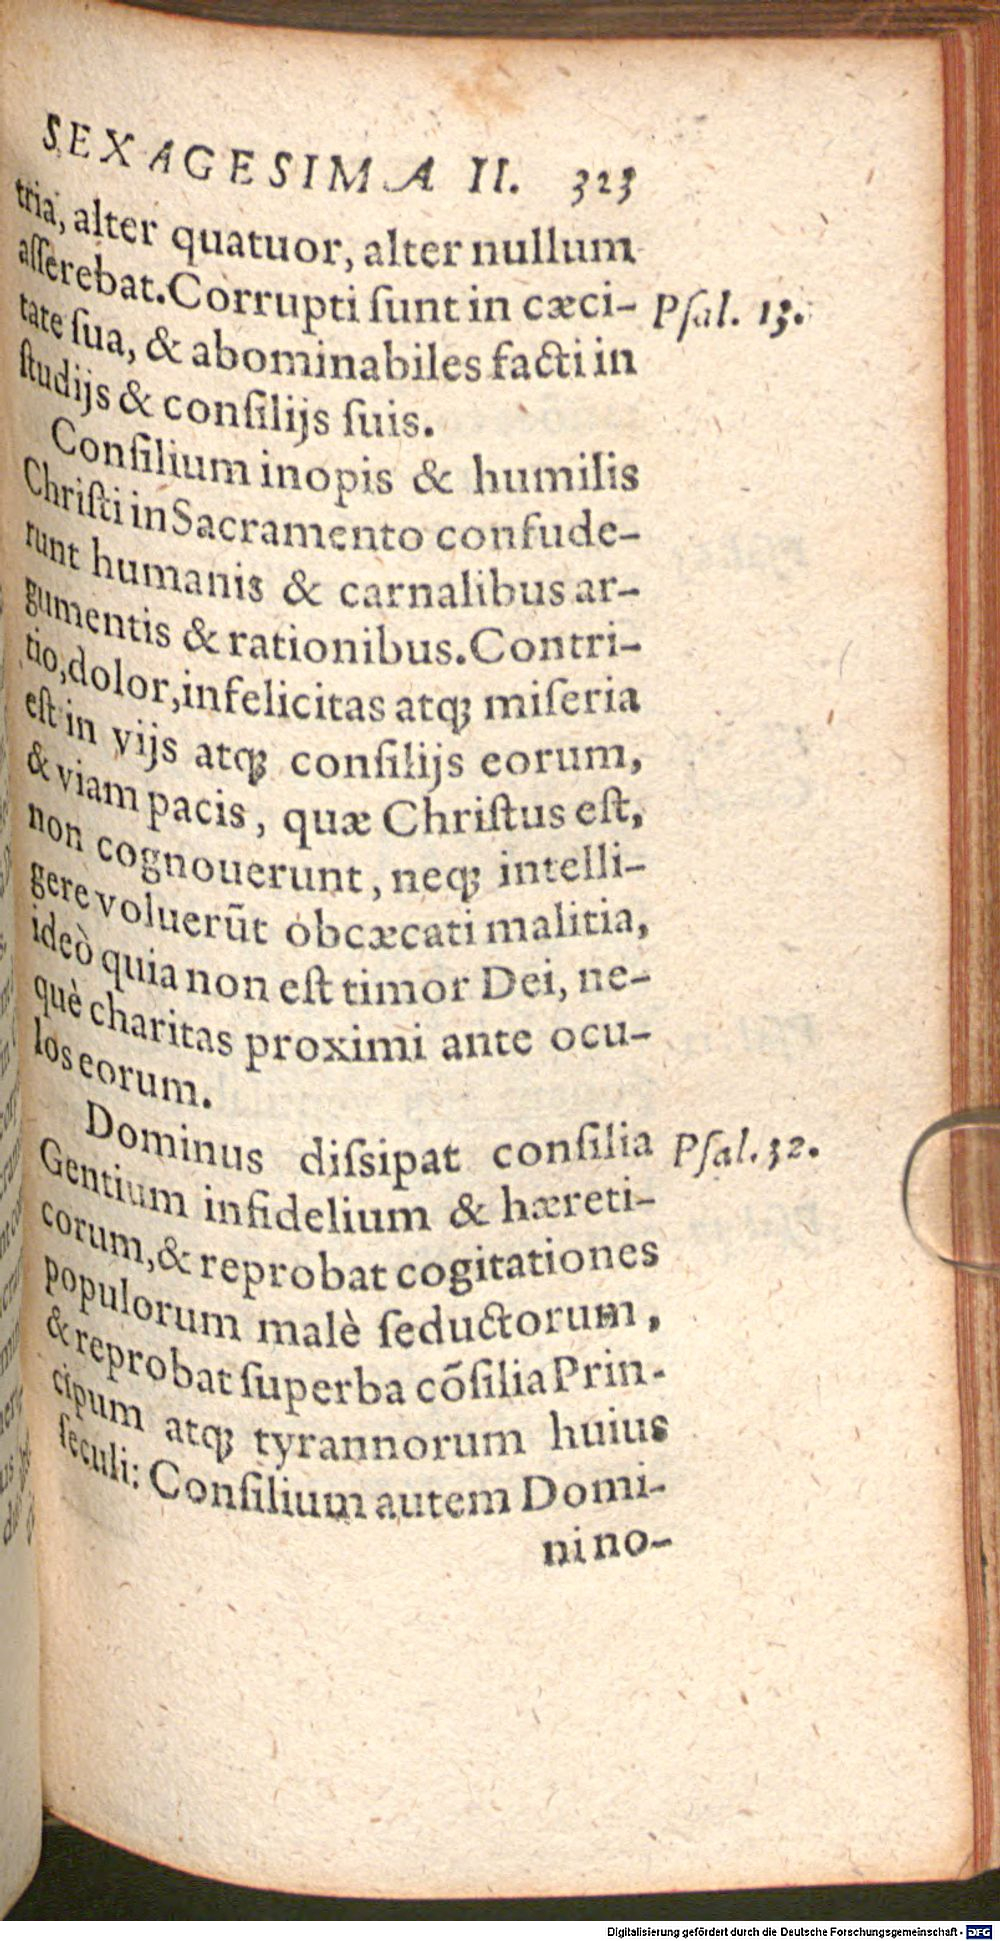 SEXAGESIMA II. 323
tria, alter quatuor, alter nullum
aſſerebat. Corrupti ſunt in cæci- Pſal. 13.
tate ſua, & abominabiles facti in
ſtudijs & conſilijs ſuis.
Conſilium inopis & humilis
Chriſti in Sacramento confude-
runt humanis & carnalibus ar-
gumentis & rationibus. Contri-
tio, dolor, infelicitas atq; miſeria
eſt in vijs atq; conſilijs eorum,
& viam pacis, quæ Chriſtus eſt,
non cognouerunt, neq; intelli-
gere voluerūt obcæcati malitia,
ideò quia non eſt timor Dei, ne-
què charitas proximi ante ocu-
los eorum.
Dominus diſsipat conſilia Pſal. 32.
Gentium infidelium & hæreti-
corum, & reprobat cogitationes
populorum malè ſeductorum,
& reprobat ſuperba cõſilia Prin-
cipum atq; tyrannorum huius
ſeculi: Conſilium autem Domi-
ni no-
Digitalisierung gefördert durch die Deutsche Forschungsgemeinschaft - DFG